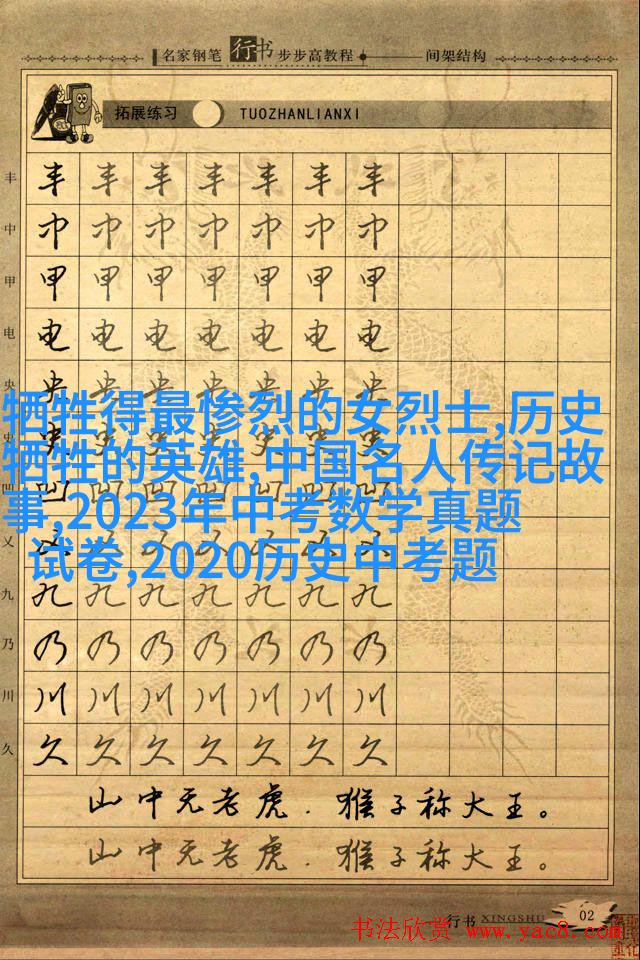 名家钢笔行书步步高教程 间架结构
拓展练习 TUOZHANLIANXI
丰 丰丰丰丰丰丰丰
中 中中中中中中中
甲 甲甲甲甲甲甲甲
电 电电电电电电电
央 央央央央央央央
牺牲得最惨烈的女烈士,历史
史
牺牲的英雄,中国名人传记故
凹 凹凹凹凹凹凹凹
事,2023年中考数学真题
试卷,2020历史中考题
九 九九九九九九九
乃 乃乃乃乃乃乃乃
川 川川川川川川川
久 久久久久久久久
山中无老虎.猴子称大王。
山中无老虎.猴子称大王。
行书 XINGSHU 02
书法欣赏 www.yac8.com